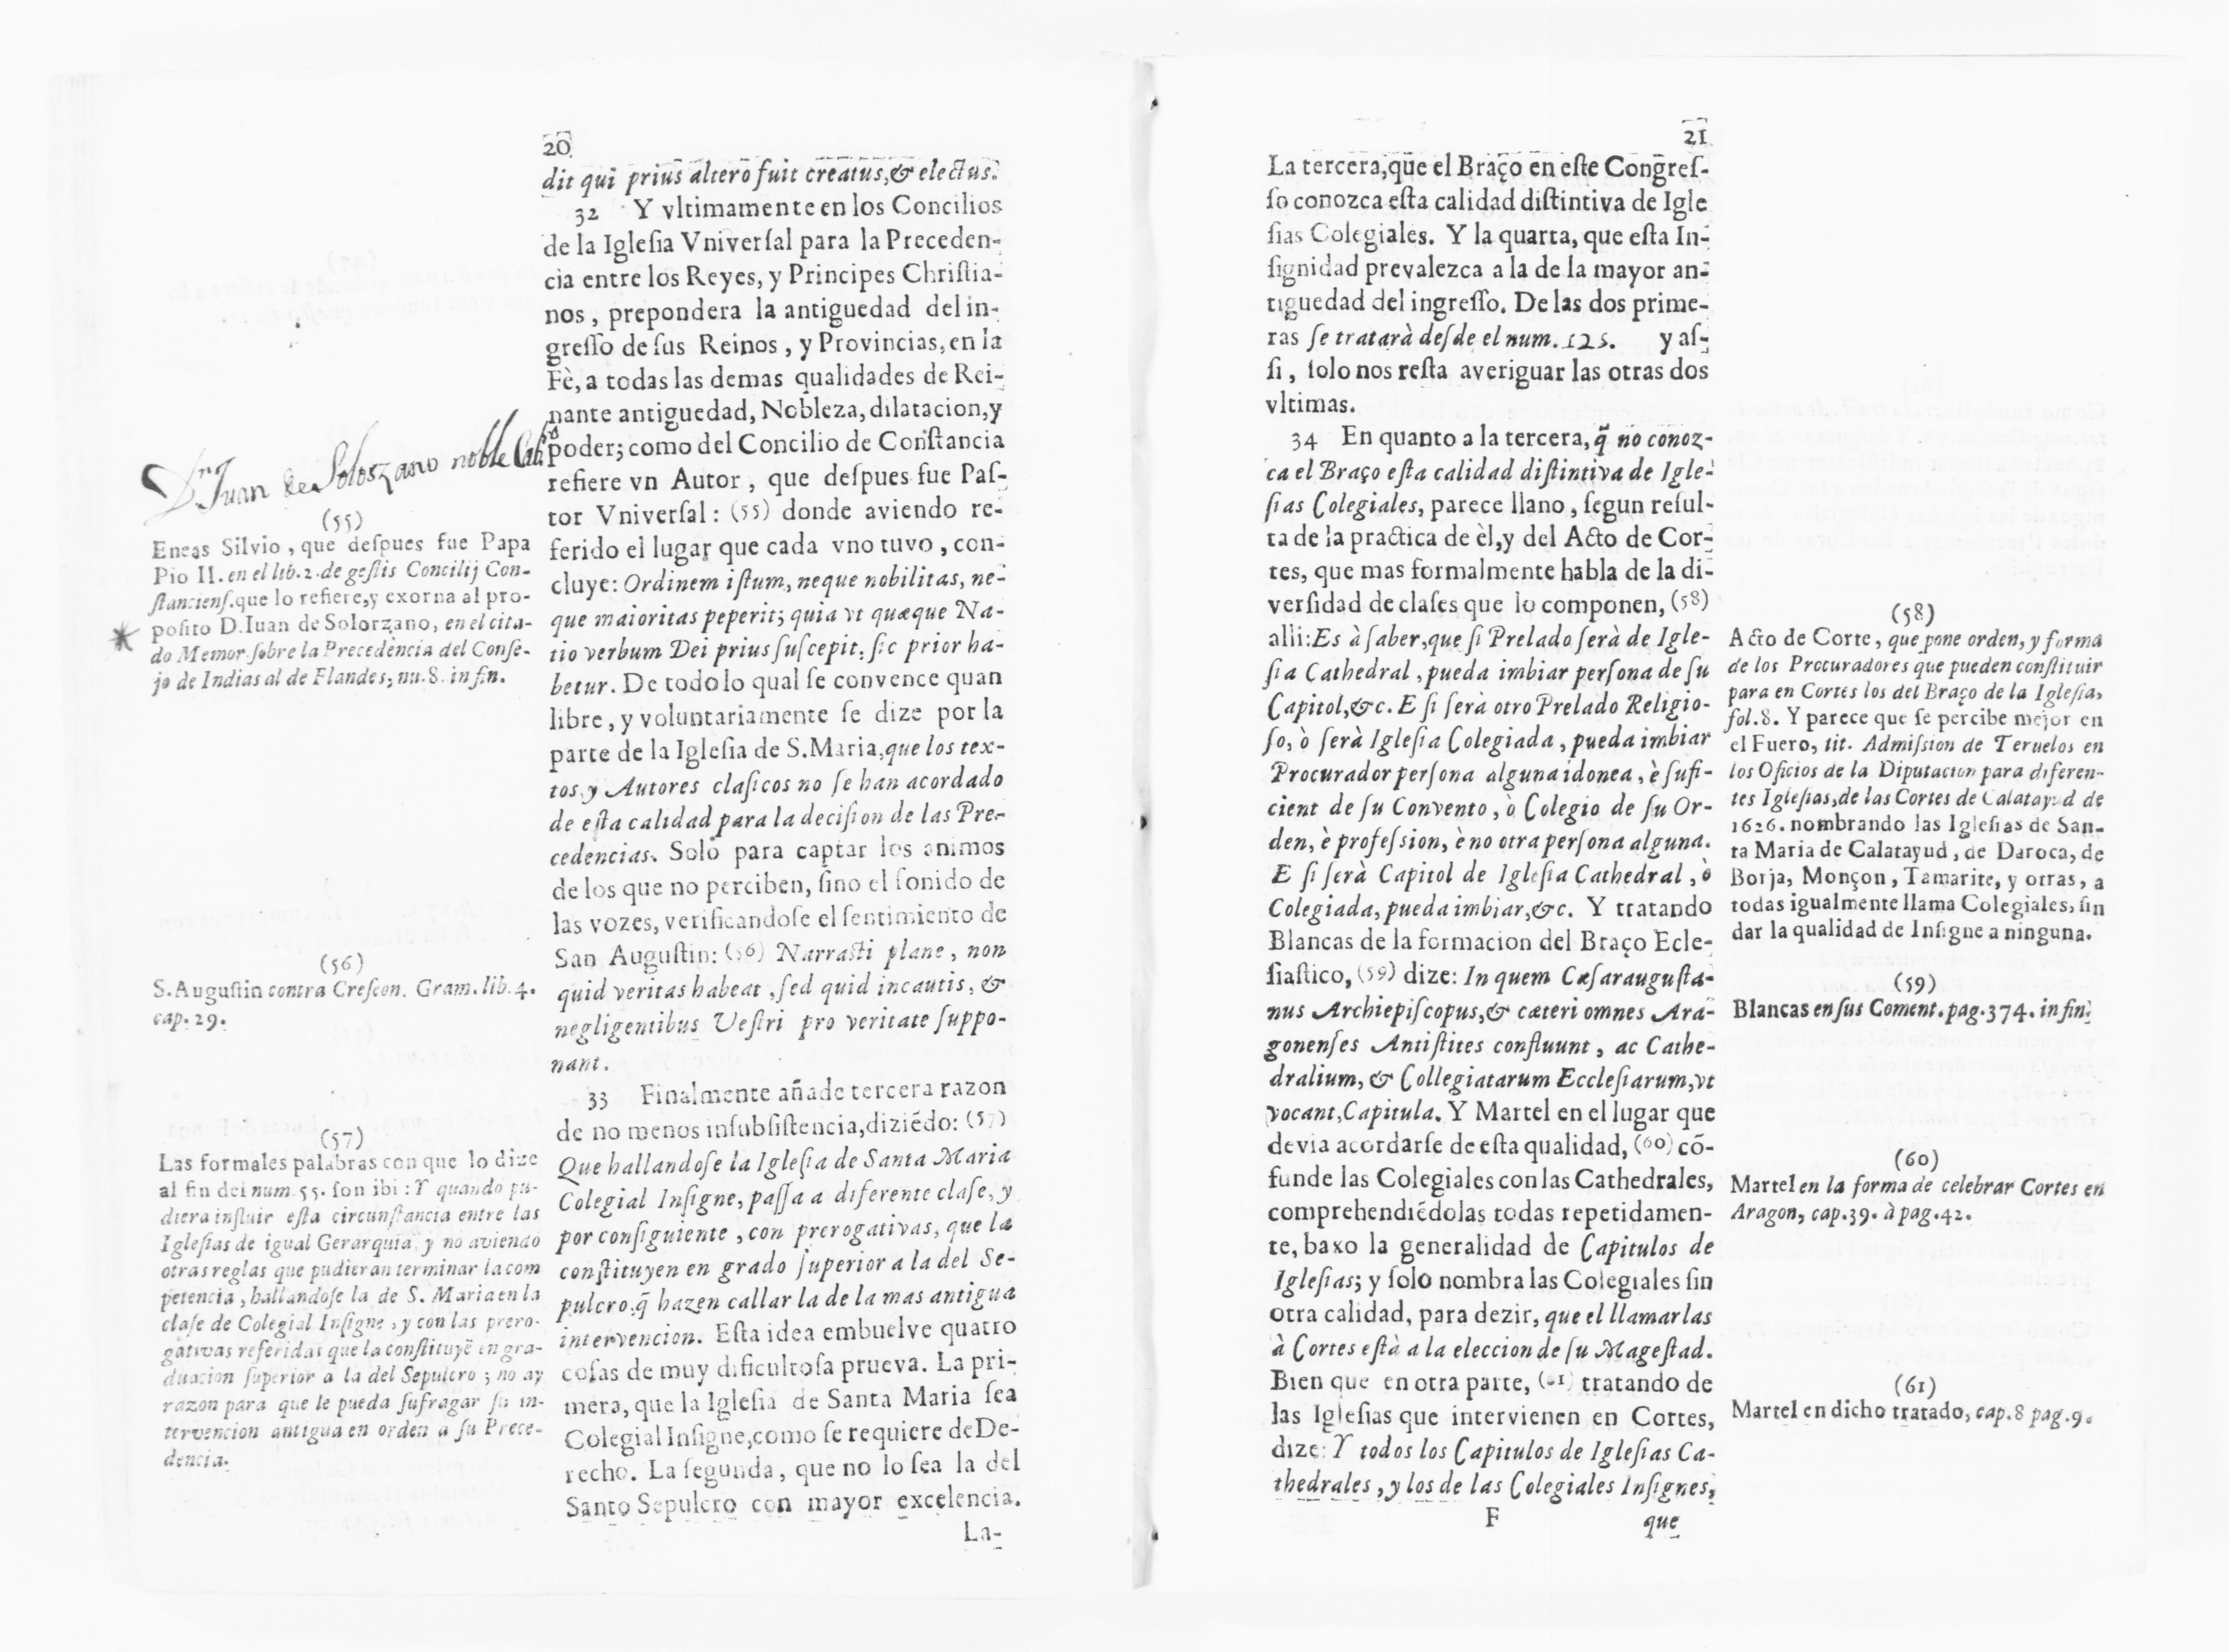 20
dit qui prius altero fuit creatus,& electus.
32 Y vltimamente en los Concilios
de la Iglesia Vniuerſal para la Preceden-
cia entre los Reyes, y Principes Chriſtia-
nos, prepondera la antiguedad del in-
greſſo de ſus Reinos, y Provincias, en la
Fè, a todas las demas qualidades de Rei-
nante antiguedad, Nobleza, dilatacion, y
poder; como del Concilio de Conſtancia
refiere vn Autor, que deſpues fue Paſ-
tor Vniverſal: (55) donde aviendo re-
ferido el lugar que cada vno tuvo, con-
cluye: Ordinem iſtum, neque nobilitas, ne-
que maioritas peperit; quia vt quæque Na-
tio verbum Dei prius ſuſcepit, ſic prior ha-
betur. De todo lo qual ſe convence quan
libre, y voluntariamente ſe dize por la
parte de la Igleſia de S. Maria, que los tex-
tos, y Autores claſicos no ſe han acordado
de eſta calidad para la deciſion de las Pre-
cedencias. Solo para captar los animos
de los que no perciben, ſino el ſonido de
las vozes, verificandoſe el ſentimiento de
San Auguſtin: (56) Narraſti plane, non
quid veritas habeat, ſed quid incautis, &
negligentibus Veſtri pro veritate ſuppo-
nant.
33 Finalmente añade tercera razon
de no menos inſubſiſtencia, diziẽdo: (57)
Que hallandoſe la Igleſia de Santa Maria
Colegial Inſigne, paſſa a diferente claſe, y
por conſiguiente, con prerogativas, que la
conſtituyen en grado ſuperior a la del Se-
pulcro, q̃ hazen callar la de la mas antigua
intervencion. Eſta idea embuelve quatro
coſas de muy dificultoſa prueva. La pri-
mera, que la Igleſia de Santa Maria ſea
Colegial Inſigne, como ſe requiere de De-
recho. La ſegunda, que no lo ſea la del
Santo Sepulcro con mayor excelencia.
La-
Dr Juan de Solorzano noble
(55)
Eneas Silvio, que deſpues fue Papa
Pio II. en el lib. 2. de geſtis Concilij Con-
ſtancienſ. que lo refiere, y exorna al pro-
poſito D. Iuan de Solorzano, en el cita-
do Memor. ſobre la Precedencia del Conſe-
jo de Indias al de Flandes, nu. 8. in fin.
(56)
S. Auguſtin contra Creſcon. Gram. lib. 4.
cap. 29.
(57)
Las formales palabras con que lo dize
al fin del num. 55. ſon ibi: Y quando pu-
diera influir eſta circunſtancia entre las
Igleſias de igual Gerarquia, y no aviendo
otras reglas que pudieran terminar la com
petencia, hallandoſe la de S. Maria en la
claſe de Colegial Inſigne, y con las prero-
gativas referidas que la conſtituyẽ en gra-
duacion ſuperior a la del Sepulcro; no ay
razon para que le pueda ſufragar ſu in-
tervencion antigua en orden a ſu Prece-
dencia.
21
La tercera, que el Braço en eſte Congreſ-
ſo conozca eſta calidad diſtintiva de Igle
ſias Colegiales. Y la quarta, que eſta In-
ſignidad prevalezca a la de la mayor an-
tiguedad del ingreſſo. De las dos prime-
ras ſe tratarà deſde el num. 125. y aſ-
ſi, ſolo nos reſta averiguar las otras dos
vltimas.
34 En quanto a la tercera, q̃ no conoz-
ca el Braço eſta calidad diſtintiva de Igle-
ſias Colegiales, parece llano, ſegun reſul-
ta de la practica de èl, y del Acto de Cor-
tes, que mas formalmente habla de la di-
verſidad de claſes que lo componen, (58)
alli: Es à ſaber, que ſi Prelado ſerà de Igle-
ſia Cathedral, pueda imbiar perſona de ſu
Capitol, &c. E ſi ſerà otro Prelado Religio-
ſo, ò ſerà Igleſia Colegiada, pueda imbiar
Procurador perſona alguna idonea, è ſufi-
cient de ſu Convento, ò Colegio de ſu Or-
den, è profeſsion, è no otra perſona alguna.
E ſi ſerà Capitol de Igleſia Cathedral, ò
Colegiada, pueda imbiar, &c. Y tratando
Blancas de la formacion del Braço Ecle-
ſiaſtico, (59) dize: In quem Cæſarauguſta-
nus Archiepiſcopus, & cæteri omnes Ara-
gonenſes Antiſtites confluunt, ac Cathe-
dralium, & Collegiatarum Eccleſiarum, vt
vocant, Capitula. Y Martel en el lugar que
devia acordarſe de eſta qualidad, (60) cõ-
funde las Colegiales con las Cathedrales,
comprehendiẽdolas todas repetidamen-
te, baxo la generalidad de Capitulos de
Igleſias; y ſolo nombra las Colegiales ſin
otra calidad, para dezir, que el llamarlas
à Cortes eſtà a la eleccion de ſu Mageſtad.
Bien que en otra parte, (61) tratando de
las Igleſias que intervienen en Cortes,
dize: Y todos los Capitulos de Igleſias Ca-
thedrales, y los de las Colegiales Inſignes,
F que
(58)
Acto de Corte, que pone orden, y forma
de los Procuradores que pueden conſtituir
para en Cortes los del Braço de la Igleſia,
fol. 8. Y parece que ſe percibe mejor en
el Fuero, tit. Admiſsion de Teruelos en
los Oficios de la Diputacion para diferen-
tes Igleſias, de las Cortes de Calatayud de
1626. nombrando las Igleſias de San-
ta Maria de Calatayud, de Daroca, de
Borja, Monçon, Tamarite, y otras, a
todas igualmente llama Colegiales, ſin
dar la qualidad de Inſigne a ninguna.
(59)
Blancas en ſus Coment. pag. 374. in fin.
(60)
Martel en la forma de celebrar Cortes en
Aragon, cap. 39. à pag. 42.
(61)
Martel en dicho tratado, cap. 8 pag. 9.